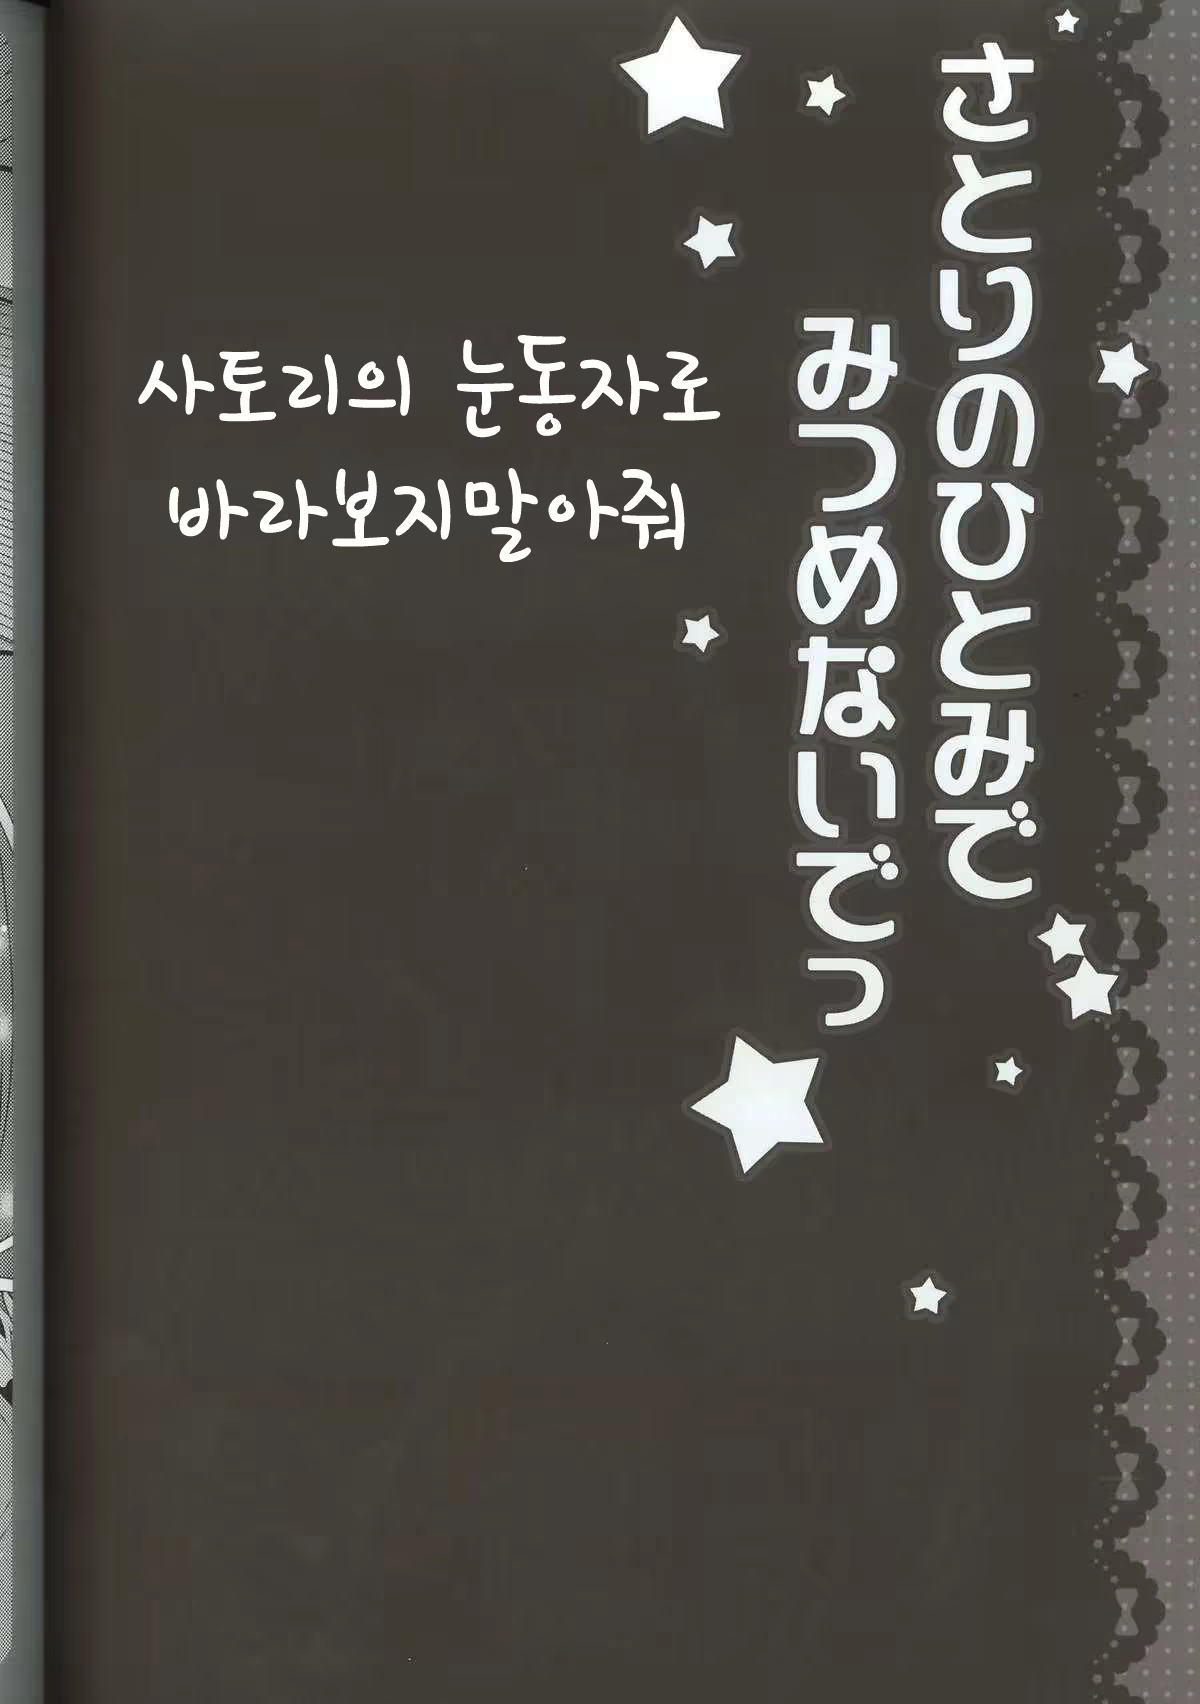 さとりのひとみで
みつめないでっ
사토리의 눈동자로
바라보지말아줘